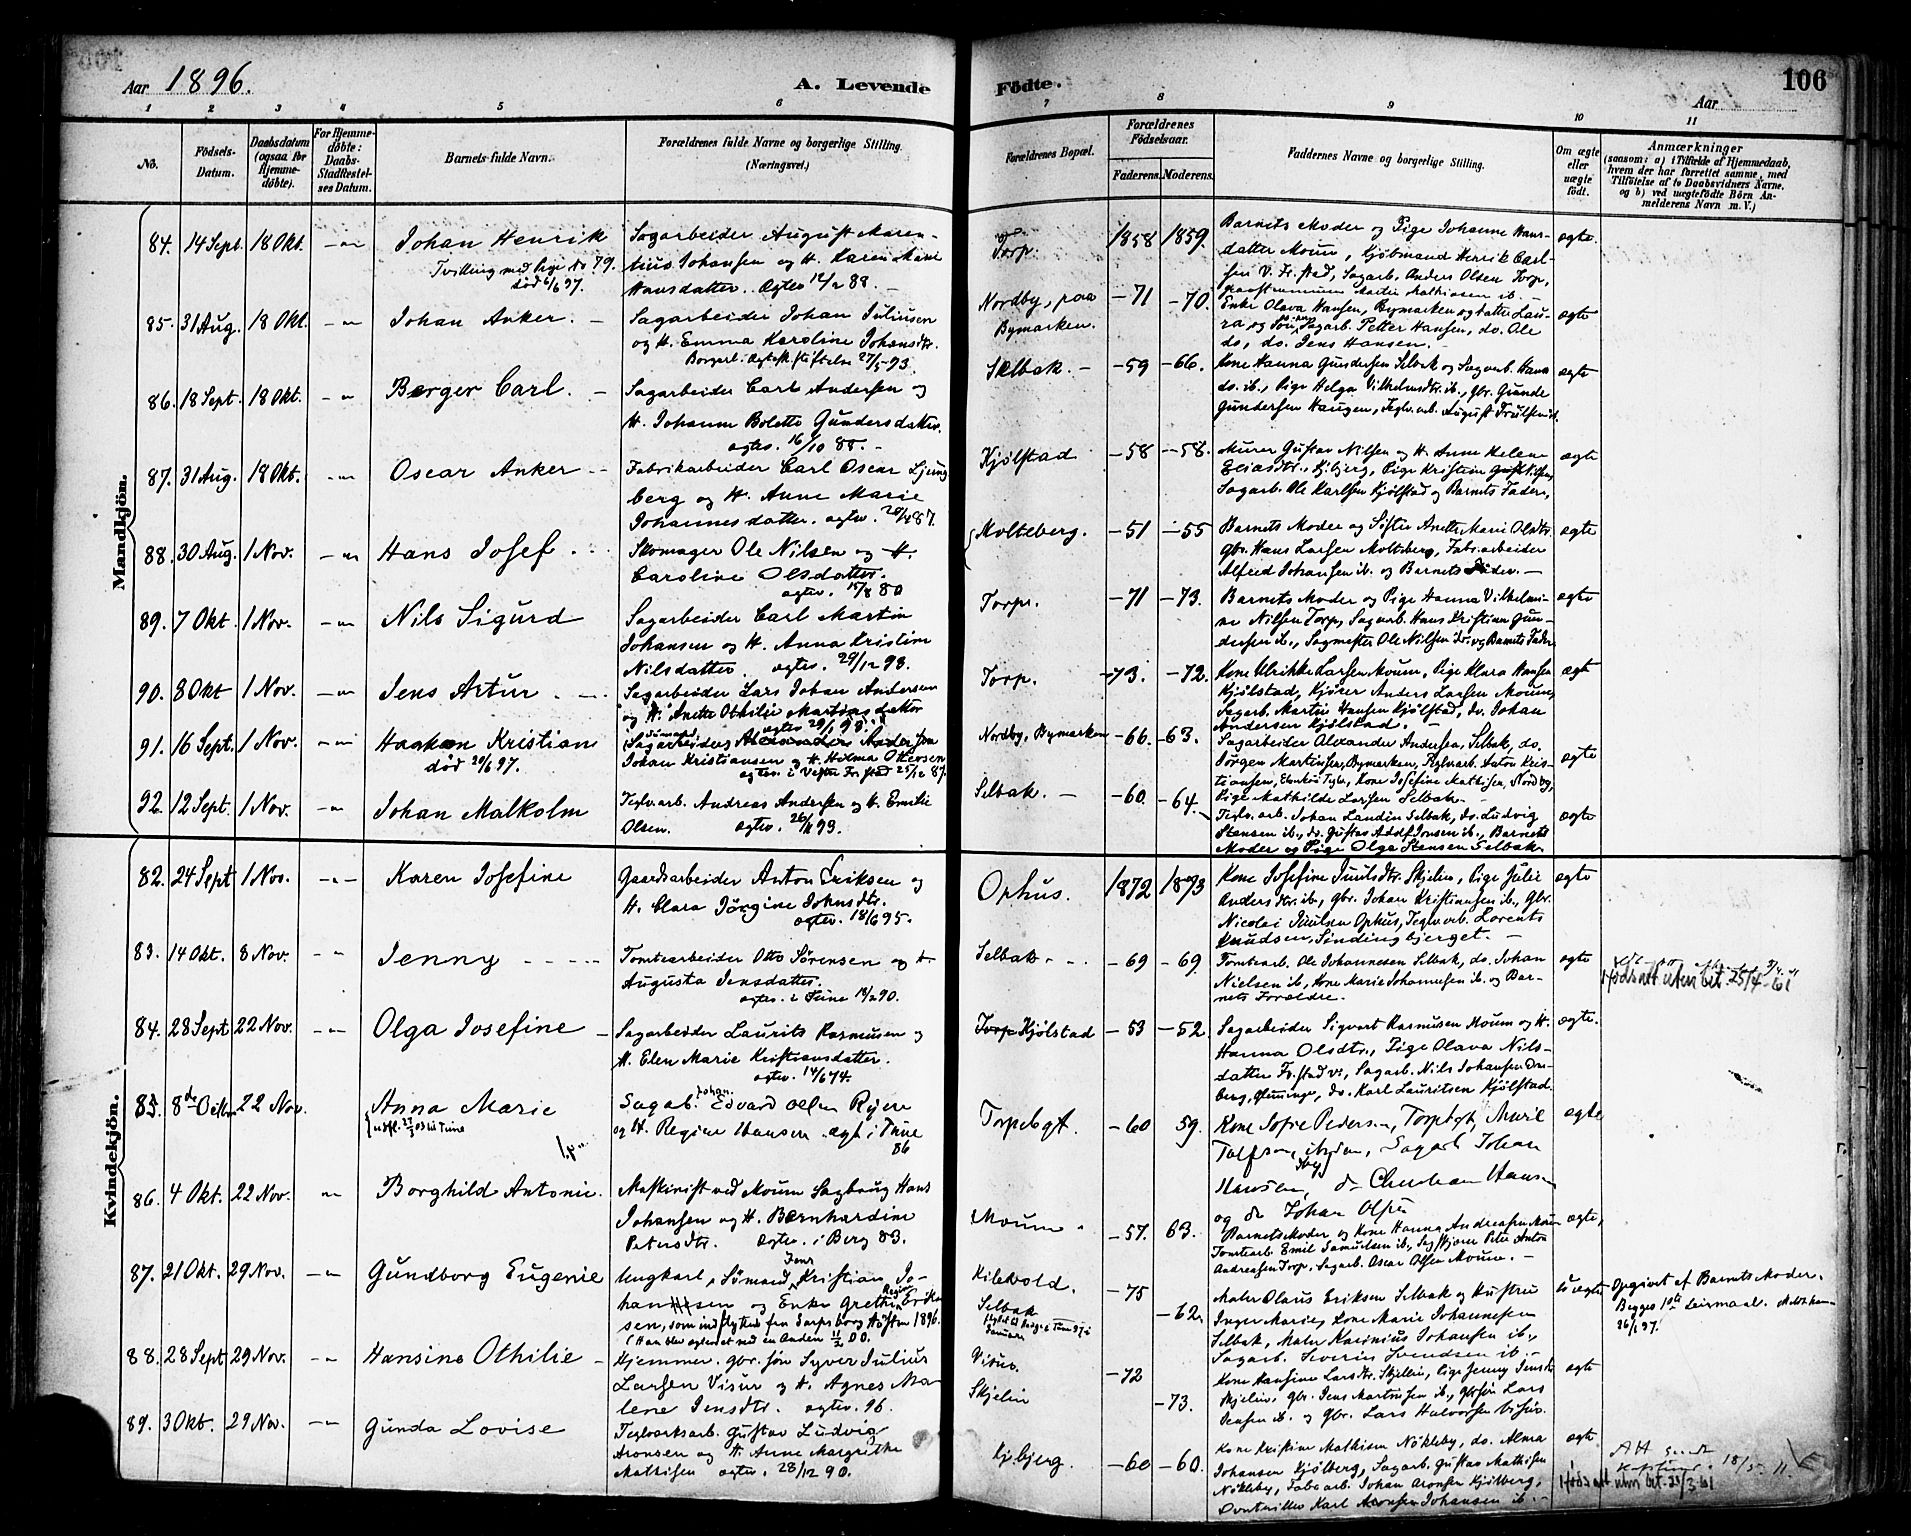 Aar 1896.
A. Levende
Födte.
Aar
106
1 2 3 4 5 6 7 8 9 10 11
No.
Födsels-Datum.
Daabsdatum (ogsaa for Hjemmedöbte).
For Hjemmedöbte: Daabs-Stadfæstelses Datum.
Barnets fulde Navn.
Forældrenes fulde Navne og borgerlige Stilling. (Næringsvei.)
Forældrenes Bopæl.
Forældrenes Födselsaar.
Faderens. Moderens.
Faddernes Navne og borgerlige Stilling.
Om ægte eller uægte födt.
Anmærkninger
(saasom: a) i Tilfælde af Hjemmedaab, hvem der har forrettet samme, med Tilföielse af to Daabsvidners Navne, og b) ved uægtefödte Börn Anmelderens Navn m. V.)
Mandkjön.
84. 14 Sept. 18 Okt. Johan Henrik
Tvilling med pige No 79.
död 6/6 97.
Sagarbeider August Maren-
tius Johansen og H. Karen Marie
Hansdatter. Ægtev. 14/2 88.
Torp. 1858 1859.
Barnets Moder og Pige Johanne Hans-
datter Moum, Kjöbmand Henrik Carl-
sen V. Fr.stad, Sagarb. Anders Olsen Torp,
ægte.
85. 31 Aug. 18 Okt. Johan Anker.
Sagarbeider Johan Juliusen
og H. Emma Karoline Johansdtr.
Borgerl. Ægteskstiftelse 27/5 93.
Nordby, paa
Bymarken.
-71 -70.
Enke Olava Hansen, Bymarken og datter Lau-
ra og Sön, Sagarb. Petter Hansen, do. Ole
do, do. Jens Hansen.
ægte
86. 18 Sept. 18 Okt. Berger Carl.
Sagarbeider Carl Andersen og
H. Johanne Bolette Gundersdatter.
ægtev. 16/10 88.
Selbak. -59 -66.
Kone Hanna Gundersen Selbak og Sagarb. Hans
do. ib., Pige Helga Vilhelmsdtr. ib., Gbr. Gunde
Gundersen Haugen, Teglv.arb. August Trulsen ib.
ægte
87. 31 Aug. 18 Okt. Oscar Anker
Fabrikarbeider Carl Oscar Ljung
berg og H. Anne Marie
Johannesdatter. ægtev. 20/4 87.
Kjölstad -58 -58.
Murer Gustav Nilsen og H. Anne Helene
Eliasdtr., Kjbjerg, Pige Kristine Gust Nilsen,
Sagarb. Ole Karlsen Kjölstad og Barnets Fader,
ægte
88. 30 Aug. 1 Nov. Hans Josef.
Skomager Ole Nilsen og H.
Caroline Olsdatter.
ægtev. 15/8 80
Molteberg. -51 -55
Barnets Moder og Söster Anette Marie Olsdtr.
Gbr. Hans Larsen Molteberg, Fabr.arbeider
Alfred Johansen ib. og Barnets Fader.
ægte
89. 7 Okt. 1 Nov. Nils Sigurd
Sagarbeider Carl Martin
Johansen og H. Anna Kristine
Nilsdatter. ægtev. 29/12 93.
Torp. -71 -73.
Barnets Moder og Pige Hanna Vilhelmi-
ne Nilsen Torp, Sagarb. Hans Kristian Gun-
dersen ib., Sagmester Ole Nilsen ib. og Barnets Fader
ægte
90. 8 Okt 1 Nov. Jens Artur
Sagarbeider Lars Johan Andersen
og H. Anette Othilie Martinsdatter
Torp. -73. -72.
Kone Ulrikke Larsen Moum, Pige Klara Hansen
Kjölstad, Kjörer Anders Larsen Moum,
Sagarb. Martin Hansen Kjölstad, do. Johan
Andersen Kjölstad.
ægt
91. 16 Sept. 1 Nov. Haakon Kristian
död 20/6 97.
Sagarbeider Alexander Andersen
Johan Kristiansen og H. Hilma Ottersen
ægtev. i Vestre Fr.stad 25/12 87.
Nordby, Bymarken -66. -63.
Sagarbeider Alexander Andersen, Selbak, do.
Jörgen Martinsen, Bymarken, Teglv.arb. Anton Kris-
tiansen, Kone Josefine Mathisen, Nordby,
Pige Mathilde Larsen Selbak.
ægte
92. 12 Sept. 1 Nov. Johan Malkolm
Teglv.arb. Andreas Andersen og H. Emilie
Olsen. ægtev.
Selbak. -60. -64.
Teglv.arb. Johan Landin Selbak, do. Ludvig
Stensen ib., do. Gustav Adolf Jonsen ib., Barnets
Moder og Pige Olga Stensen Selbak.
ægte
Kvindekjön.
82. 24 Sept 1 Nov. Karen Josefine
Gaardsarbeider Anton Eriksen og
H. Clara Jörgine Johnsdtr.
ægtev. 18/6 95.
Ophus. 1872 1873
Kone Josefine Juulsdtr. Skjelin, Pige Julie
Andersdtr. ib., Gbr. Johan Kristiansen ib., Gbr.
Nicolai Juulsen Ophus, Teglv.arb. Lorents
Knudsen, Sindingbjerget.
ægte
83. 14 Okt. 8 Nov. Jenny
Tomtearbeider Otto Sörensen og H
Augusta Jensdatter.
ægtev. i Tune 14/2 90.
Selbak. -69 -69.
Tomtearb. Ole Johannesen Selbak, do. Johan
Nielsen ib., Kone Marie Johannesen ib. og Bar-
nets Forældre.
ægte
Födsatt uten bet. 25/4-61
84. 28 Sept 22 Nov. Olga Josefine
Sagarbeider Laurits Rasmusen og
H. Elen Marie Kristiansdatter.
ægtev. 14/6 74.
Torp Kjölstad -53 -52.
Sagarbeider Sigvart Rasmusen Moum og H.
Hanna Olsdtr., Pige Olava Nils-
datter Fr.stad V., Sagarb. Nils Johansen Ore-
berg, Glemminge, do. Karl Lauritsen Kjölstad.
ægte.
85. 8de Octbr 22 Nov. Anna Marie
udfl. 27/3 03 til Tune
Sagab. Johan Edvard Olsen Ryere
og H. Regine Hansen ægt i Tune
86
Torpebgt. -60 59.
Kone Sofie Pedersen, Torpebgt,
Sagarb Johan
Hansen, do Christian Hansen
og do Johan Olsen
ægte
86. 4 Okt. 22 Nov. Borghild Antonie.
Maskinist ved Moum Sagbrug Hans
Johansen og H. Bernhardine
Petersdtr. ægtev. i Berg 83.
Moum. -57. 63.
Barnets Moder og Kone Hanna Andreasen Moum
Tomtearb Emil Samuelsen ib., Sagskjærer Peter Anton
Andreasen Torp, Sagarb. Oscar Olsen Moum.
ægte,
87. 21 Okt. 29 Nov. Gundborg Eugenie
Ungkarl, Sömand Jens Kristian Jo-
hansen og Enke Grethe Regine Erik-
sen, som indflyttede fra Sarpsborg Hösten 1896.
(Han blev ægteviet ved en Anden 11/2 00.
Kilevold.
Selbak
-75
-62.
Maler Olaus Eriksen Selbak og Hustru
Inger Marie, Kone Marie Johannesen
Selbak, Maler Karinius Johansen ib.,
Sagarb. Severin Svendsen ib.
Uægte
Opgivet af Barnets Moder.
Begges 1ste Leiermaal.
26/1 97.
88. 28 Sept 29 Nov. Hansine Othilie
Hjemmev. Gbr. sön Syver Julius
Larsen Visur og H. Agnes Ma-
lene Jensdtr. ægtev. 96.
Visur.
Skjelin
-72
-73.
Kone Hansine Larsdtr. Skjelin, Pige Jenny Jensdtr
Skjelin, Gbr. Jens Martinsen ib., Gbrsön Lars
Jensen ib. og Gbr. Lars Halvorsen Visur.
ægte
89. 3 Okt. 29 Nov. Gunda Lovise
Teglværksarb. Gustav Ludvig
Aronsen og H. Anne Margrethe
Mathisen ægtev. 28/12 90.
Kjbjerg. -60 -60.
Kone Kristine Mathisen Nökleby, do. Alma
Johansen Kjölberg, Sagarb. Gustav Mathisen
Nökleby, Fabr.arb. Johan Aronsen Kjölberg,
Karl Aronsen Johansen ib.
ægt
Födsatt uten bet. 28/3 61